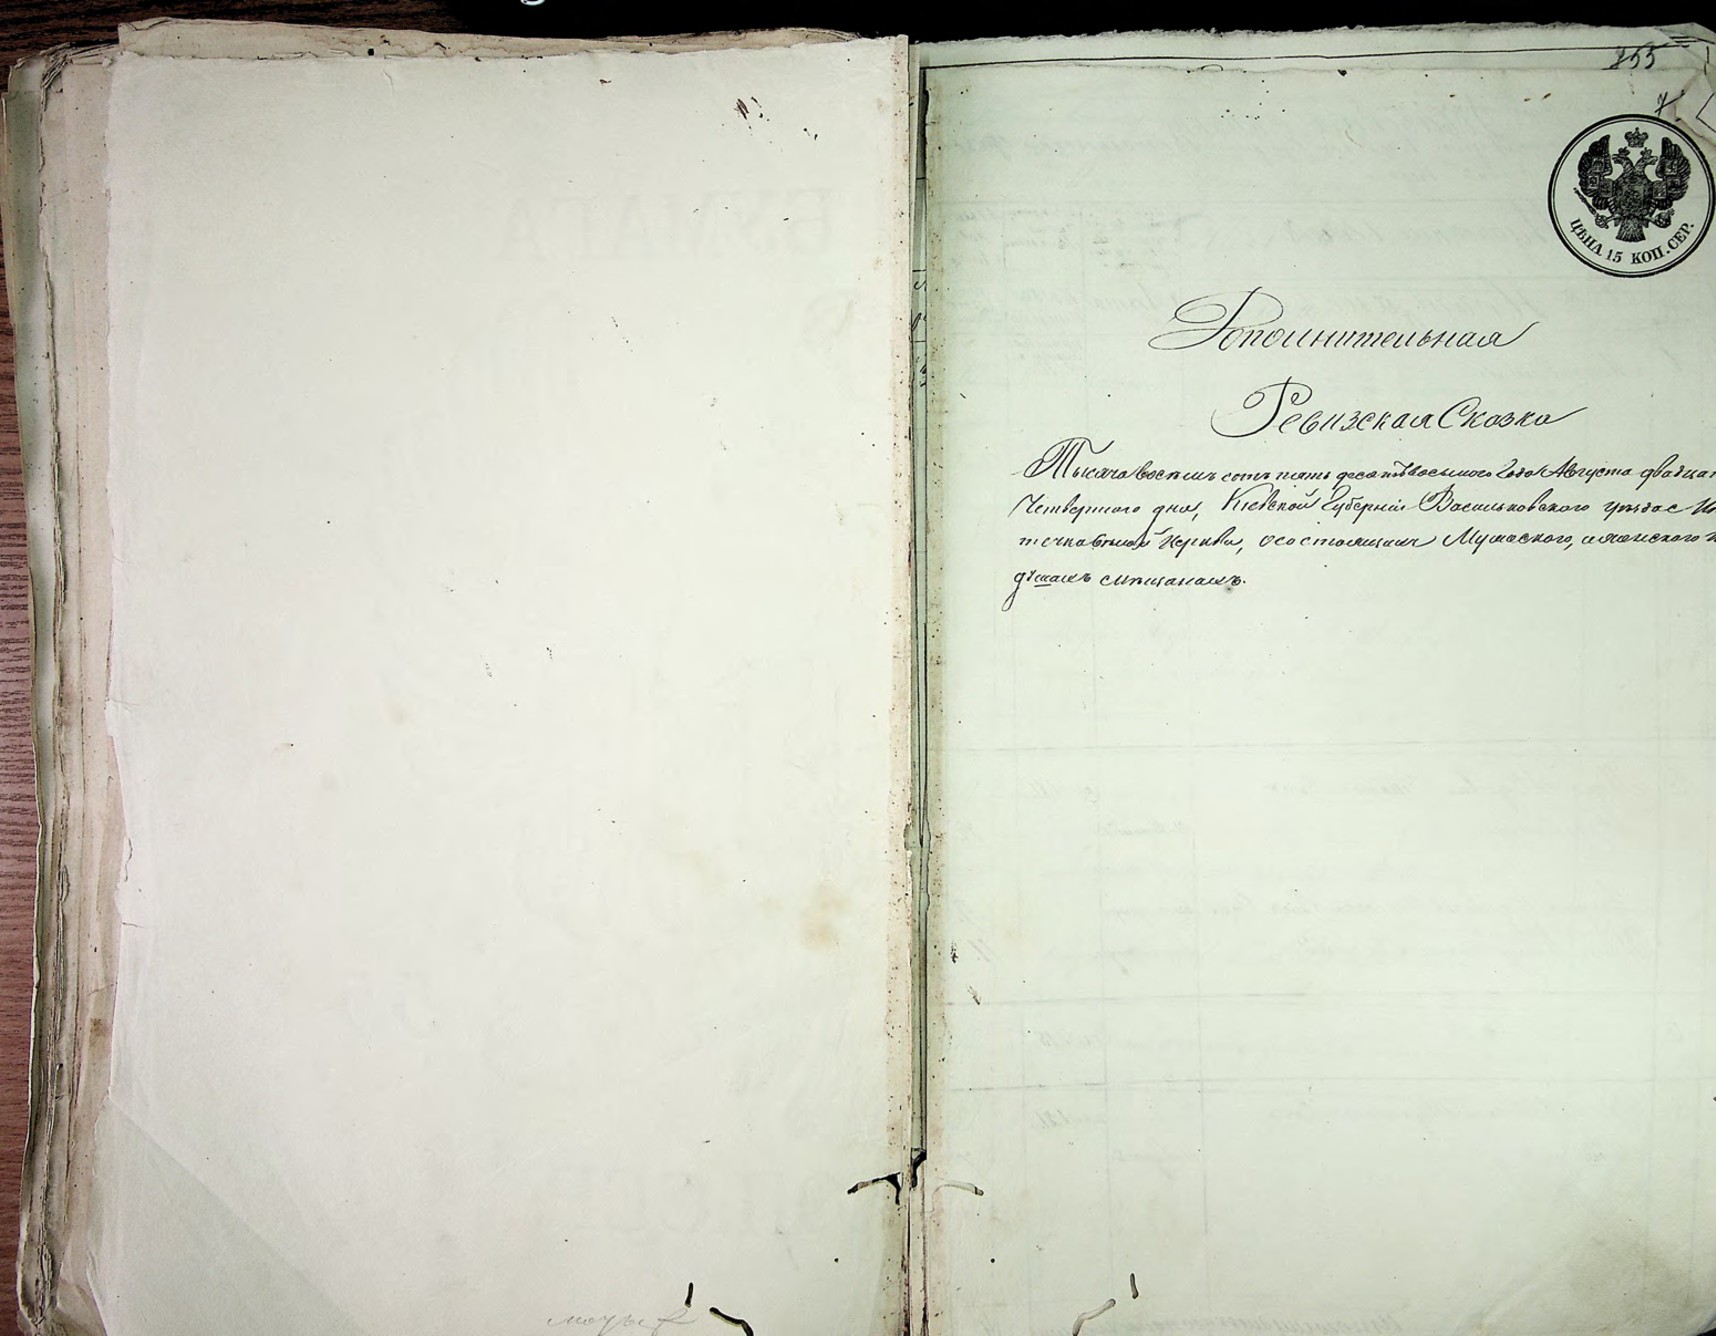 255
7
ЦѢНА 15 КОП. СЕР.
Дополнительная
Ревизская Сказка
Тысяча восемь сотъ пять десятъ восьмого Года Августа двадца
Четвертого дня, Кіевской Губерніи Васильковского уѣзда
течка Бѣлой Церкви, о состоящихъ Мужеского, и женского
душахъ мѣщанахъ.